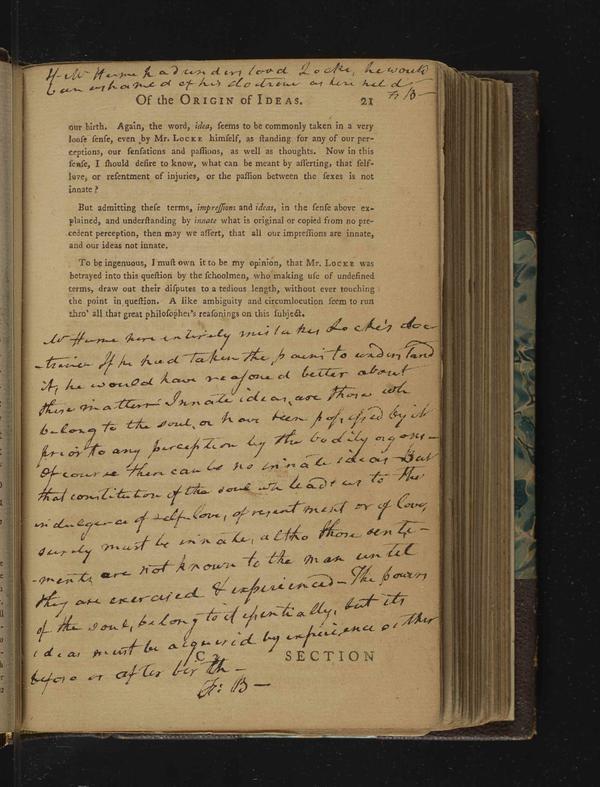 If Mr Hume had understood Locke, he would
be ashamed of his doctrine as here held
Fr B—
Of the ORIGIN of IDEAS. 21
our birth. Again, the word, idea, seems to be commonly taken in a very
loose sense, even by Mr. LOCKE himself, as standing for any of our per-
ceptions, our sensations and passions, as well as thoughts. Now in this
sense, I should desire to know, what can be meant by asserting, that self-
love, or resentment of injuries, or the passion between the sexes is not
innate?
But admitting these terms, impressions and ideas, in the sense above ex-
plained, and understanding by innate what is original or copied from no pre-
cedent perception, then may we assert, that all our impressions are innate,
and our ideas not innate.
To be ingenuous, I must own it to be my opinion, that Mr. LOCKE was
betrayed into this question by the schoolmen, who making use of undefined
terms, draw out their disputes to a tedious length, without ever touching
the point in question. A like ambiguity and circumlocution seem to run
thro' all that great philosopher's reasonings on this subject.
Mr Hume here entirely mistakes Locke's doc-
-trine. If he had taken the pains to understand
it, he would have reasoned better about
these matters— Innate ideas, are those wh
belong to the soul, or have been possessed by it
prior to any perception by the bodily organs—
Of course there can be no innate ideas— But
that constitution of the soul wh leads us to the
indulgence of self-love, of resentment or of love,
surely must be innate, altho those senti-
-ments are not known to the man until
they are exercised & experienced— The powers
of the soul, belong to it essentially, but its
ideas must be acquired by experience either
before or after birth—
Fr: B—
C 2 SECTION